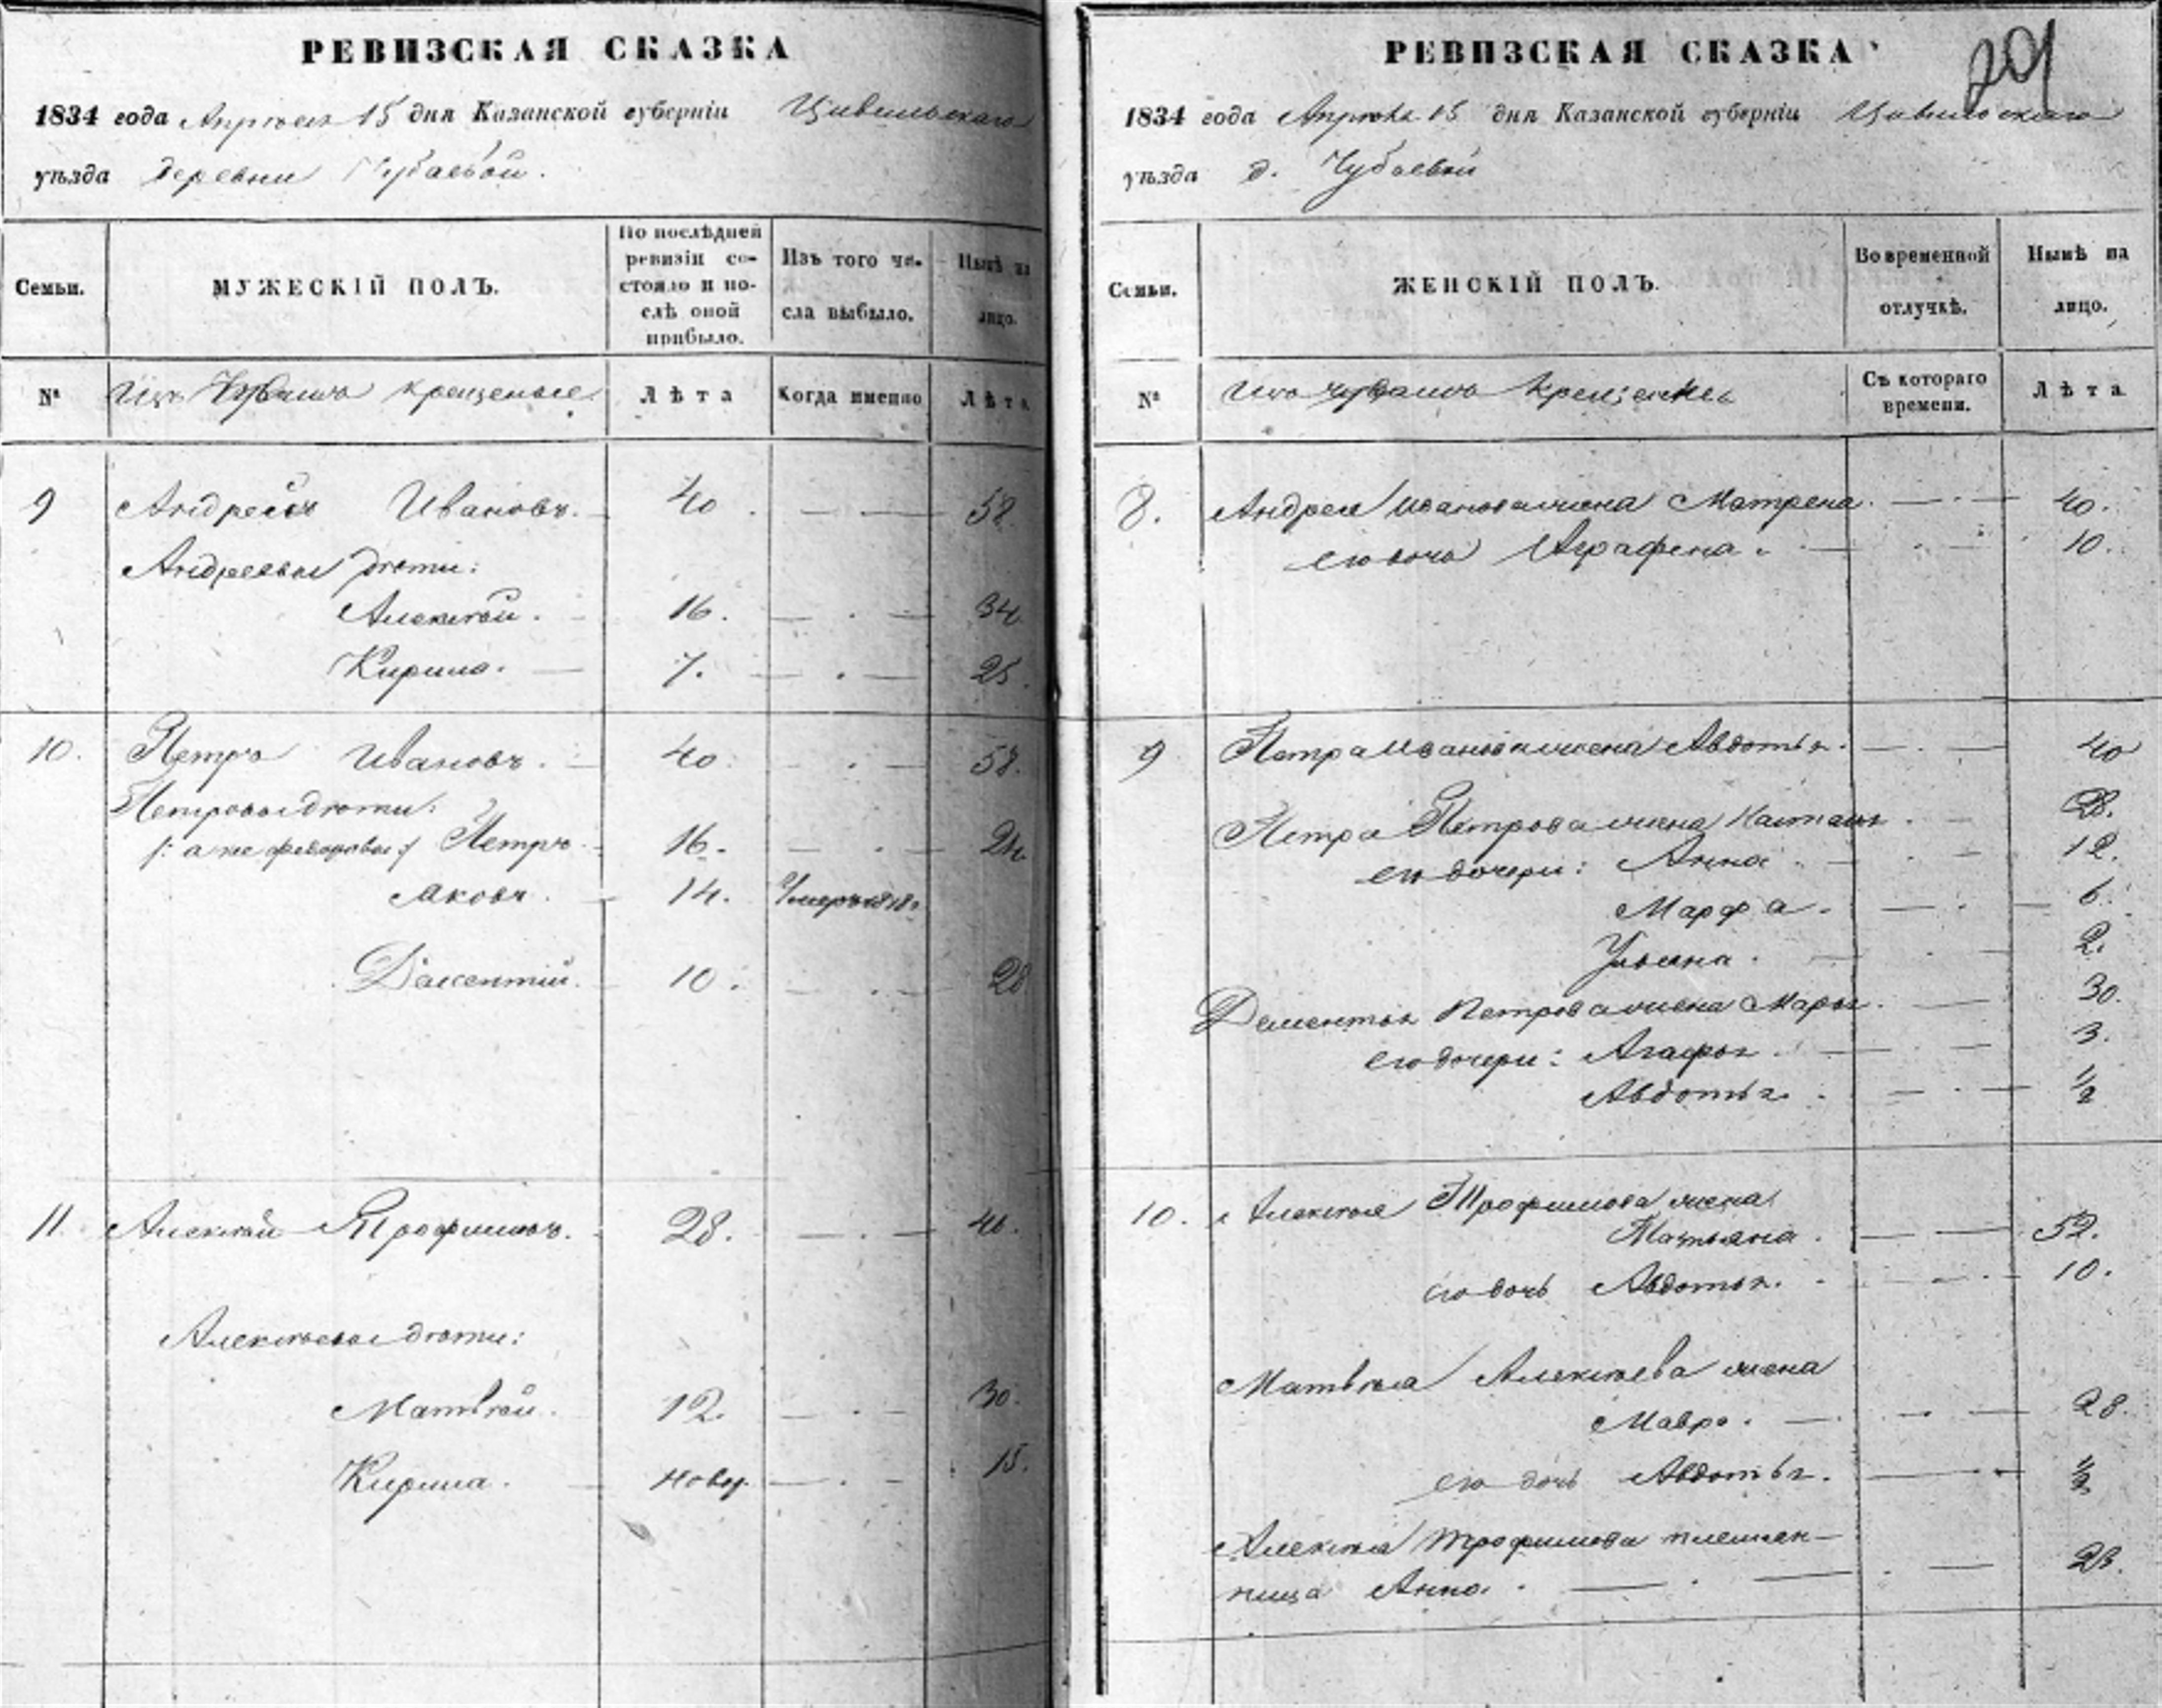 РЕВИЗСКАЯ СКАЗКА
1834 года Апрѣля 15 дня Казанской губерніи Цивильскаго
уѣзда деревни Чубаевой.
Семьи.
МУЖЕСКІЙ ПОЛЪ.
По послѣдней ревизіи со-
стояло и по-
слѣ оной
прибыло.
Изъ того чи-
сла выбыло.
Нынѣ на
лицо.
№
Изъ Чувашъ крещеные
Лѣта
Когда именно
Лѣта
9 Андрей Ивановъ. 40 58.
Андреевы дѣти:
Алексѣй. 16. 34
Кирила. 7. 25.
10. Петръ Ивановъ. 40. 58.
Петровы дѣти:
/: а не федоровы :/ Петръ 16. 34
Яковъ. 14. Умеръ 1818.
Дементій. 10. 28
11. Алексѣй Трофимовъ. 28. 46.
Алексѣевы дѣти:
Матвѣй. 12. 30.
Кирила. новор. 15.
РЕВИЗСКАЯ СКАЗКА
201
1834 года Апрѣля 15 дня Казанской губерніи Цивильскаго
уѣзда д. Чубаевой
Семьи.
ЖЕНСКІЙ ПОЛЪ.
Во временной
отлучкѣ.
Нынѣ на
лицо.
№
Изъ чувашъ крещеные
Съ котораго
времени.
Лѣта
8. Андрея Иванова жена Матрена. 40.
его дочь Аграфена. 10.
9 Петра Иванова жена Авдотья. 40
Петра Петрова жена Настасья. 28.
его дочери: Анна 12.
Марфа. 6.
Ульяна. 2.
Дементья Петрова жена Марья. 30.
его дочери: Агафья. 3.
Авдотья. ½
10. Алексѣя Трофимова жена
Татьяна. 52.
его дочь Авдотья. 10.
Матвѣя Алексѣева жена
Мавра. 28.
его дочь Авдотья. ½
Алексѣя Трофимова племян-
ница Анна. 23.